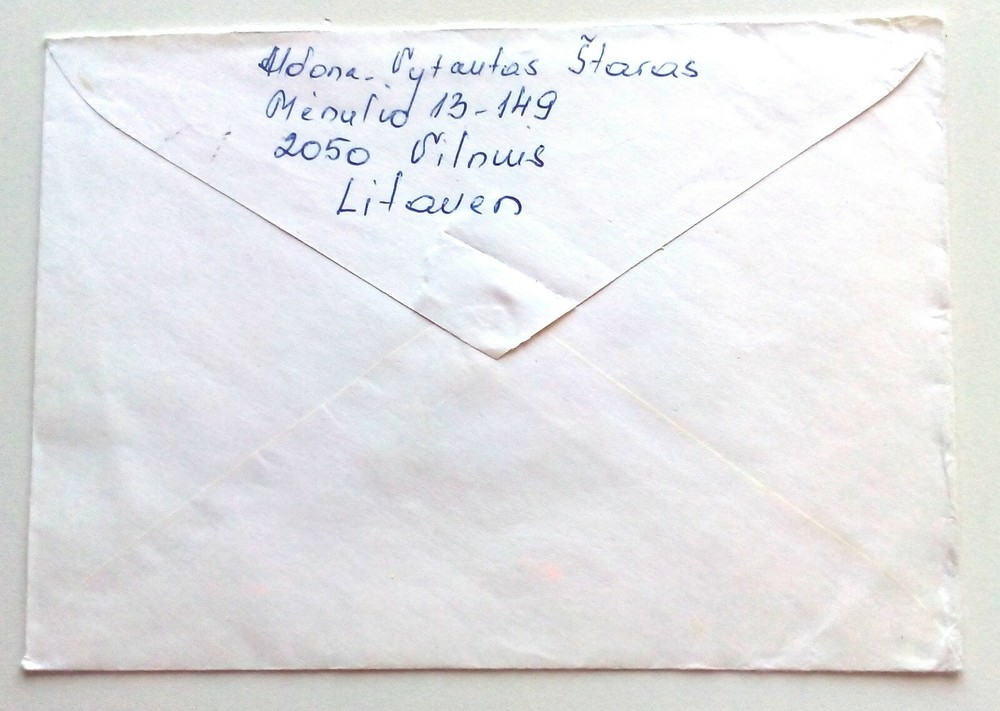 Aldona-Vytautas Štaras
Mėnulio 13-149
2050 Vilnius
Litauen